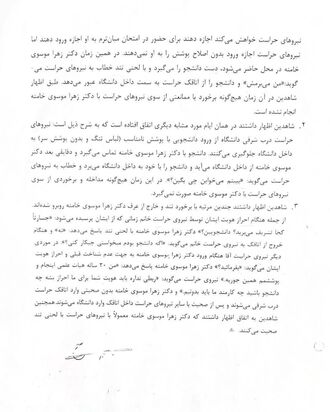 نیروهای حراست خواهش می‌کند اجازه دهند برای حضور در امتحان میان‌ترم به او اجازه ورود دهند اما
نیروهای حراست اجازه ورود بدون اصلاح پوشش را به او نمی‌دهند. در همین زمان دکتر زهرا موسوی
خامنه در محل حاضر می‌شود، دست دانشجو را می‌گیرد و با لحنی تند خطاب به نیروهای حراست می
گوید:«من می‌برمش» و دانشجو را از اتاقک حراست به سمت داخل دانشگاه عبور می‌دهد. طبق اظهار
شاهدین در آن زمان هیچ‌گونه برخورد یا ممانعتی از سوی نیروهای حراست با دکتر زهرا موسوی خامنه
انجام نشده است.
۲. شاهدین اظهار داشتند در همان ایام مورد مشابه دیگری اتفاق افتاده است که به شرح ذیل است: نیروهای
حراست درب شرقی دانشگاه از ورود دانشجویی با پوشش نامناسب (لباس تنگ و بدون پوشش سر) به
داخل دانشگاه جلوگیری می‌کنند. دانشجو با دکتر زهرا موسوی خامنه تماس می‌گیرد و دقایقی بعد دکتر
موسوی خامنه از داخل دانشگاه می‌آید و دانشجو را با خود به داخل دانشگاه می‌برد و خطاب به نیروهای
حراست می‌گوید: «ببینم می‌خواین چی بگین؟». در این زمان هیچ‌گونه مداخله و برخوردی از سوی
نیروهای حراست با دکتر موسوی خامنه صورت نمی‌گیرد.
۳. شاهدین اظهار داشتند چندین مرتبه با برخورد تند و خارج از عرف دکتر زهرا موسوی خامنه روبرو شده‌اند.
از جمله هنگام احراز هویت ایشان توسط نیروی حراست خانم زمانی که از ایشان پرسیده می‌شود: «جسارتاً
کجا تشریف می‌برید؟ دانشجویین؟» دکتر زهرا موسوی خامنه با لحنی تند پاسخ می‌دهد: «نه» و هنگام
خروج از اتاقک به نیروی حراست خانم می‌گوید: «اگ دانشجو بودم میخواستی جیکار کنی؟». در موردی
دیگر نیروی حراست آقا هنگام ورود دکتر زهرا موسوی خامنه به جهت عدم شناخت قبلی و احراز هویت
ایشان می‌گوید: «بفرمائید؟» دکتر زهرا موسوی خامنه پاسخ می‌دهد: «من ۲۰ ساله هیات علمی اینجام و
پوششمم همین جوریه.» نیروی حراست می‌گوید: «ربطی نداره باید هویت شما برای ما احراز بشه چه
دانشجو باشید چه کارمند ما باید بدونیم.» و دکتر زهرا موسوی خامنه بدون صحبتی وارد اتاقک حراست
درب شرقی می‌شوند و پس از صحبت با سایر نیروهای حراست داخل اتاقک وارد دانشگاه می‌شوند.همچنین
شاهدین به اتفاق اظهار داشتند که دکتر زهرا موسوی خامنه معمولاً با نیروهای حراست با لحنی تند
صحبت می‌کنند.